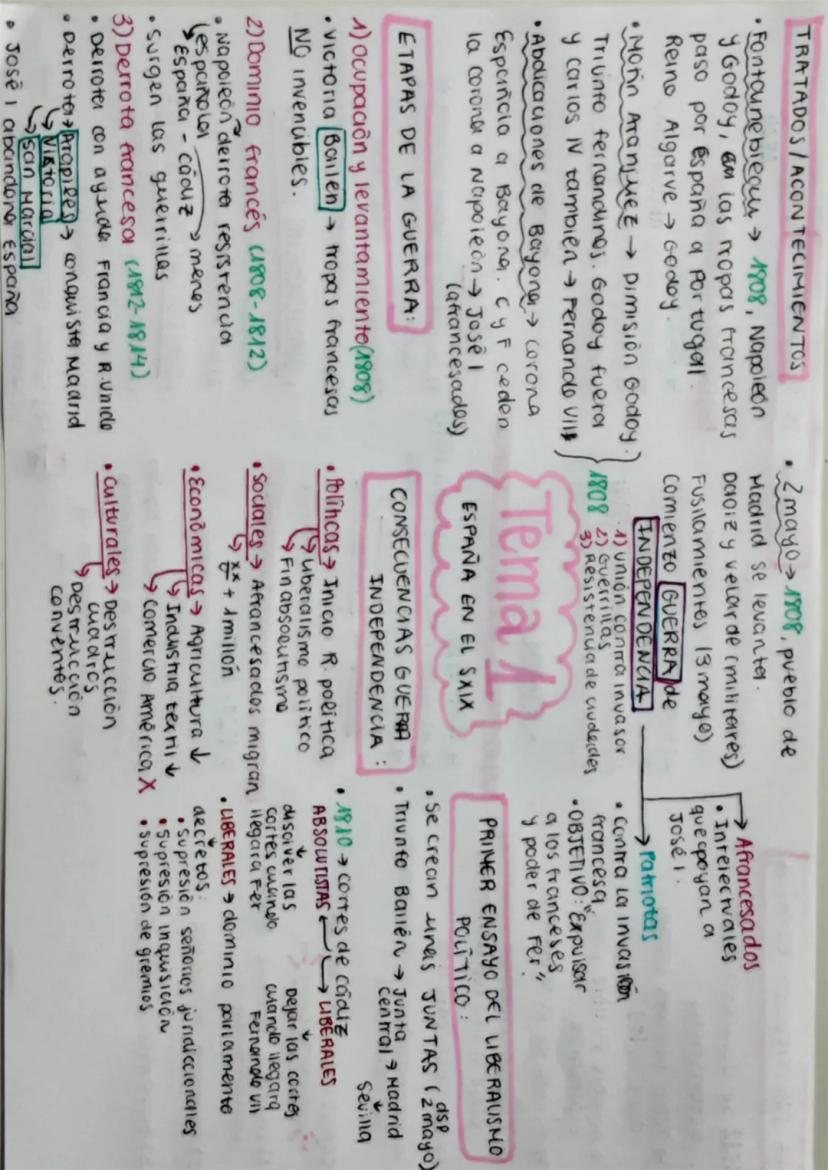 TRATADOS/ACONTECIMIENTOS
• Fontaunebleau → 1808, Napoleón
y Godoy, las tropas francesas
paso por España a Portugal.
Reino Algarve → Godoy.
• Motín Aranjuez → Dimisión Godoy.
Triunfo fernandinos. Godoy fuera
y Carlos IV también → Fernando VII
• Abdicaciones de Bayona → corona
Española a Bayona. C y F ceden
la corona a Napoleón → José I
(afrancesados)
ETAPAS DE LA GUERRA:
1) Ocupación y levantamiento (1808)
• Victoria Bailén → tropas francesas
NO invencibles.
2) Dominio francés (1808-1812)
• Napoleón derrota resistencia
española → menos
España - Cádiz
• Surgen las guerrillas
3) Derrota francesa (1812-1814)
• Derrota con ayuda Francia y R. Unido
• Derrota → Arapiles → conquista Madrid
→ Vistoria
→ San Marcial
• José I abandona España
• 2 mayo → 1808, pueblo de
Madrid se levanta.
Daoiz y Velarde (militares)
Fusilamientos (3 mayo)
Comienzo GUERRA de
INDEPENDENCIA
1808
1) Unión contra invasor
2) Guerrillas
3) Resistencia de ciudades
Tema 1
ESPAÑA EN EL SXIX
CONSECUENCIAS GUERRA
INDEPENDENCIA:
• Políticas → Inicio R. política
→ Liberalismo político
→ Fin absolutismo
• Sociales → Afrancesados migran
→ + 1 millón
• Económicas → Agricultura ↓
→ Industria textil ↓
→ Comercio América X
• Culturales → Destrucción
cuadros
→ Destrucción
conventos.
→ Afrancesados
• Intelectuales
que apoyan a
José I.
→ Patriotas
• Contra la invasión
francesa
• OBJETIVO: "Expulsar
a los franceses
y poder de Fer."
PRIMER ENSAYO DEL LIBERALISMO
POLÍTICO:
• Se crean unas JUNTAS (dsp
2 mayo)
• Triunfo Bailén → Junta
Central → Madrid
↓
Sevilla
• 1810 → Cortes de Cádiz
ABSOLUTISTAS ← → LIBERALES
disolver las
cortes cuando
llegara Fer
Dejar las cortes
cuando llegara
Fernando VII
• LIBERALES → dominio parlamento
decretos:
• Supresión señoríos jurídiccionales
• Supresión inquisición
• Supresión de gremios